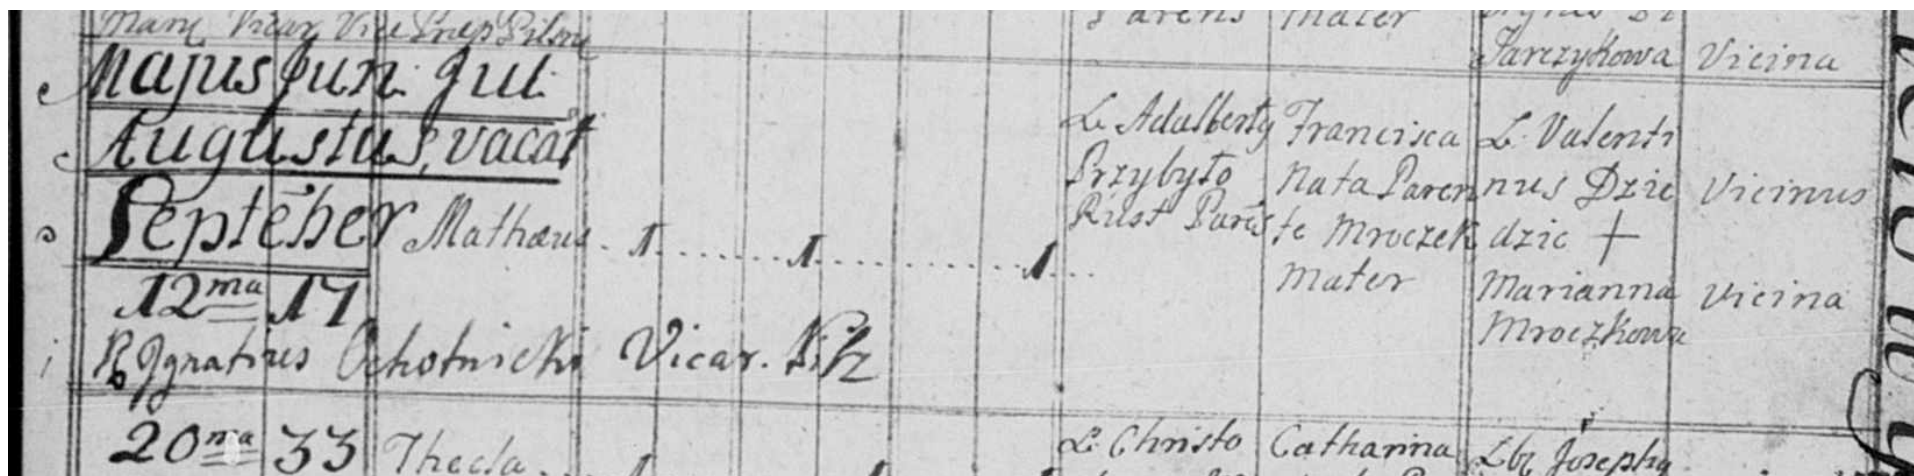 Parens Mater
Vicar Vice
Jarczykowa Vicina
Majus Jun. Jul.
Augustus, vacat
Septēber
12ma 17
Mathæus 1 1 1
L. Adalberty
Przybyło
Rust Parēs
Francisca
Nata Paren
te Mroczek
Mater
L. Valenti
nus Dzie
dzic +
Marianna
Mroczkowa
Vicinus
Vicina
Ignatius Ochotnicki Vicar. Pilz
20ma 33 Thecla
L. Christo Catharina Josephg